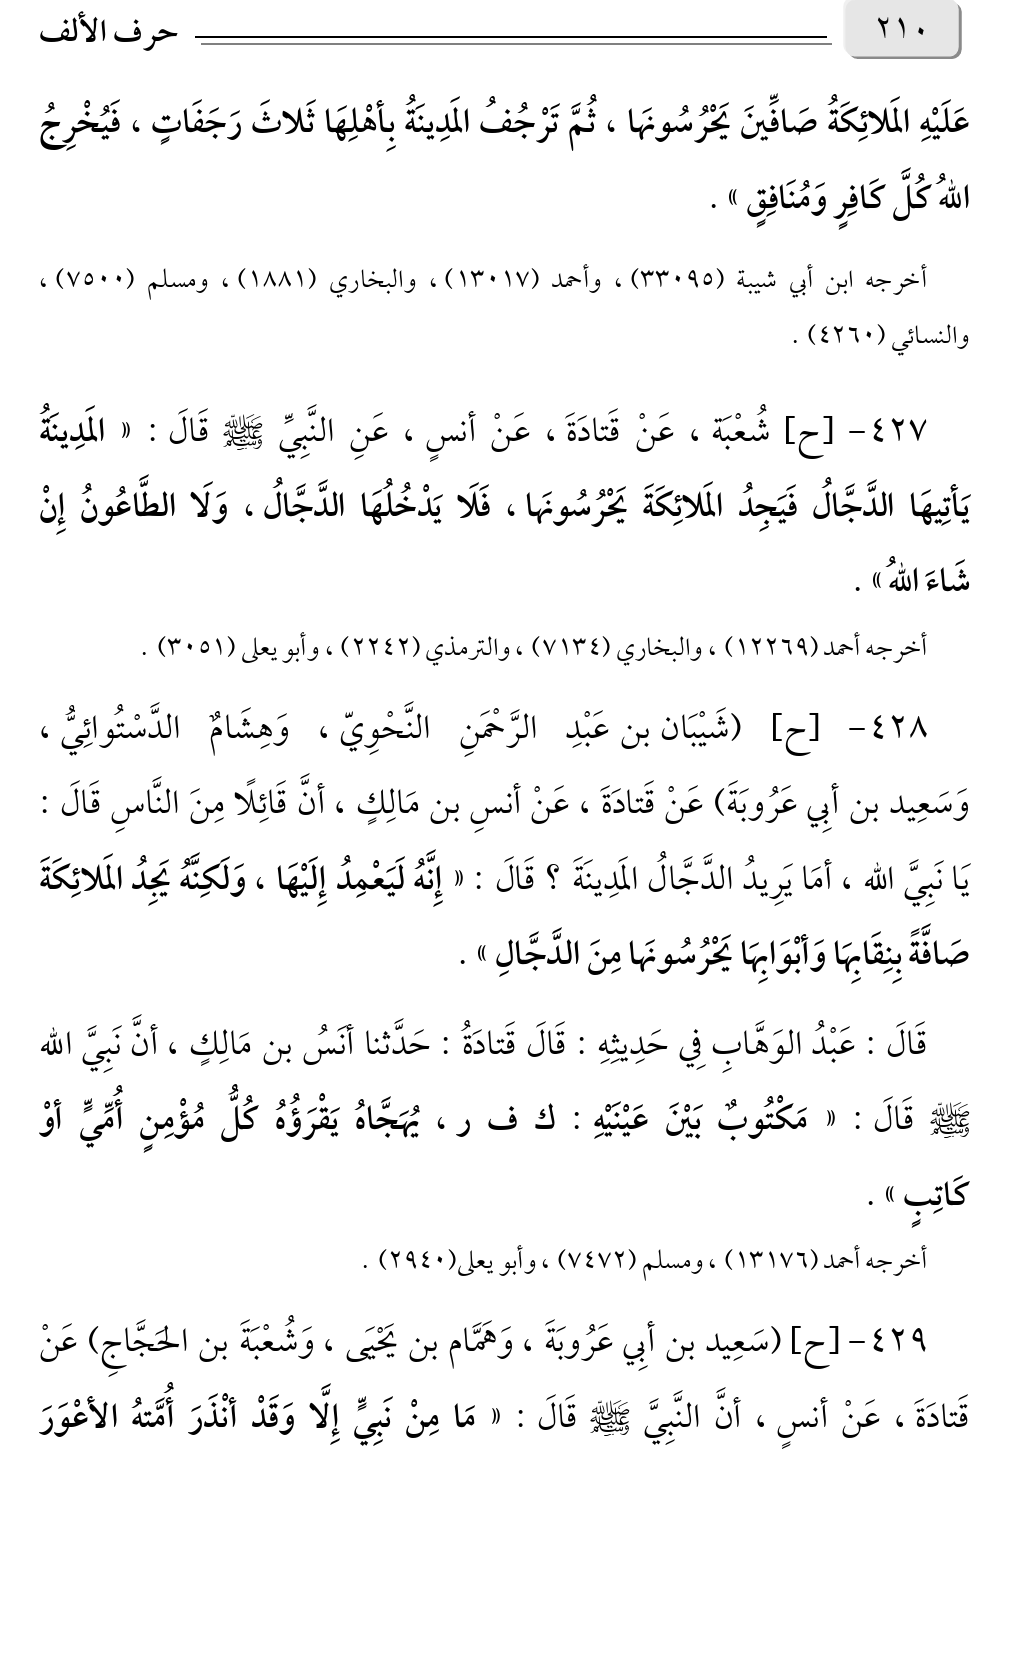 ٢١٠ حرف الألف
عَلَيْهِ المَلائِكَةُ صَافِّينَ يَحْرُسُونَهَا ، ثُمَّ تَرْجُفُ المَدِينَةُ بِأهْلِهَا ثَلاثَ رَجَفَاتٍ ، فَيُخْرِجُ
اللهُ كُلَّ كَافِرٍ وَمُنَافِقٍ » .
أخرجه ابن أبي شيبة (٣٣٠٩٥) ، وأحمد (١٣٠١٧) ، والبخاري (١٨٨١) ، ومسلم (٧٥٠٠) ،
والنسائي (٤٢٦٠) .
٤٢٧- [ح] شُعْبَة ، عَنْ قَتادَةَ ، عَنْ أنسٍ ، عَنِ النَّبِيِّ ﷺ قَالَ : « المَدِينَةُ
يَأتِيهَا الدَّجَّالُ فَيَجِدُ المَلائِكَةَ يَحْرُسُونَهَا ، فَلَا يَدْخُلُهَا الدَّجَّالُ ، وَلَا الطَّاعُونُ إِنْ
شَاءَ اللهُ » .
أخرجه أحمد (١٢٢٦٩) ، والبخاري (٧١٣٤) ، والترمذي (٢٢٤٢) ، وأبو يعلى (٣٠٥١) .
٤٢٨- [ح] (شَيْبَان بن عَبْدِ الرَّحْمَنِ النَّحْوِيّ ، وَهِشَامٌ الدَّسْتُوائِيُّ ،
وَسَعِيد بن أبِي عَرُوبَةَ) عَنْ قَتادَةَ ، عَنْ أنسِ بن مَالِكٍ ، أنَّ قَائِلًا مِنَ النَّاسِ قَالَ :
يَا نَبِيَّ الله ، أمَا يَرِيدُ الدَّجَّالُ المَدِينَةَ ؟ قَالَ : « إِنَّهُ لَيَعْمِدُ إِلَيْهَا ، وَلَكِنَّهُ يَجِدُ المَلائِكَةَ
صَافَّةً بِنِقَابِهَا وَأبْوَابِهَا يَحْرُسُونَهَا مِنَ الدَّجَّالِ » .
قَالَ : عَبْدُ الوَهَّابِ فِي حَدِيثِهِ : قَالَ قَتادَةُ : حَدَّثنا أنَسُ بن مَالِكٍ ، أنَّ نَبِيَّ الله
ﷺ قَالَ : « مَكْتُوبٌ بَيْنَ عَيْنَيْهِ : ك ف ر ، يُهَجَّاهُ يَقْرَؤُهُ كُلُّ مُؤْمِنٍ أُمِّيٍّ أوْ
كَاتِبٍ » .
أخرجه أحمد (١٣١٧٦) ، ومسلم (٧٤٧٢) ، وأبو يعلى(٢٩٤٠) .
٤٢٩- [ح] (سَعِيد بن أبِي عَرُوبَةَ ، وَهَمَّام بن يَحْيَى ، وَشُعْبَةَ بن الحَجَّاجِ) عَنْ
قَتادَةَ ، عَنْ أنسٍ ، أنَّ النَّبِيَّ ﷺ قَالَ : « مَا مِنْ نَبِيٍّ إِلَّا وَقَدْ أنْذَرَ أُمَّتهُ الأعْوَرَ